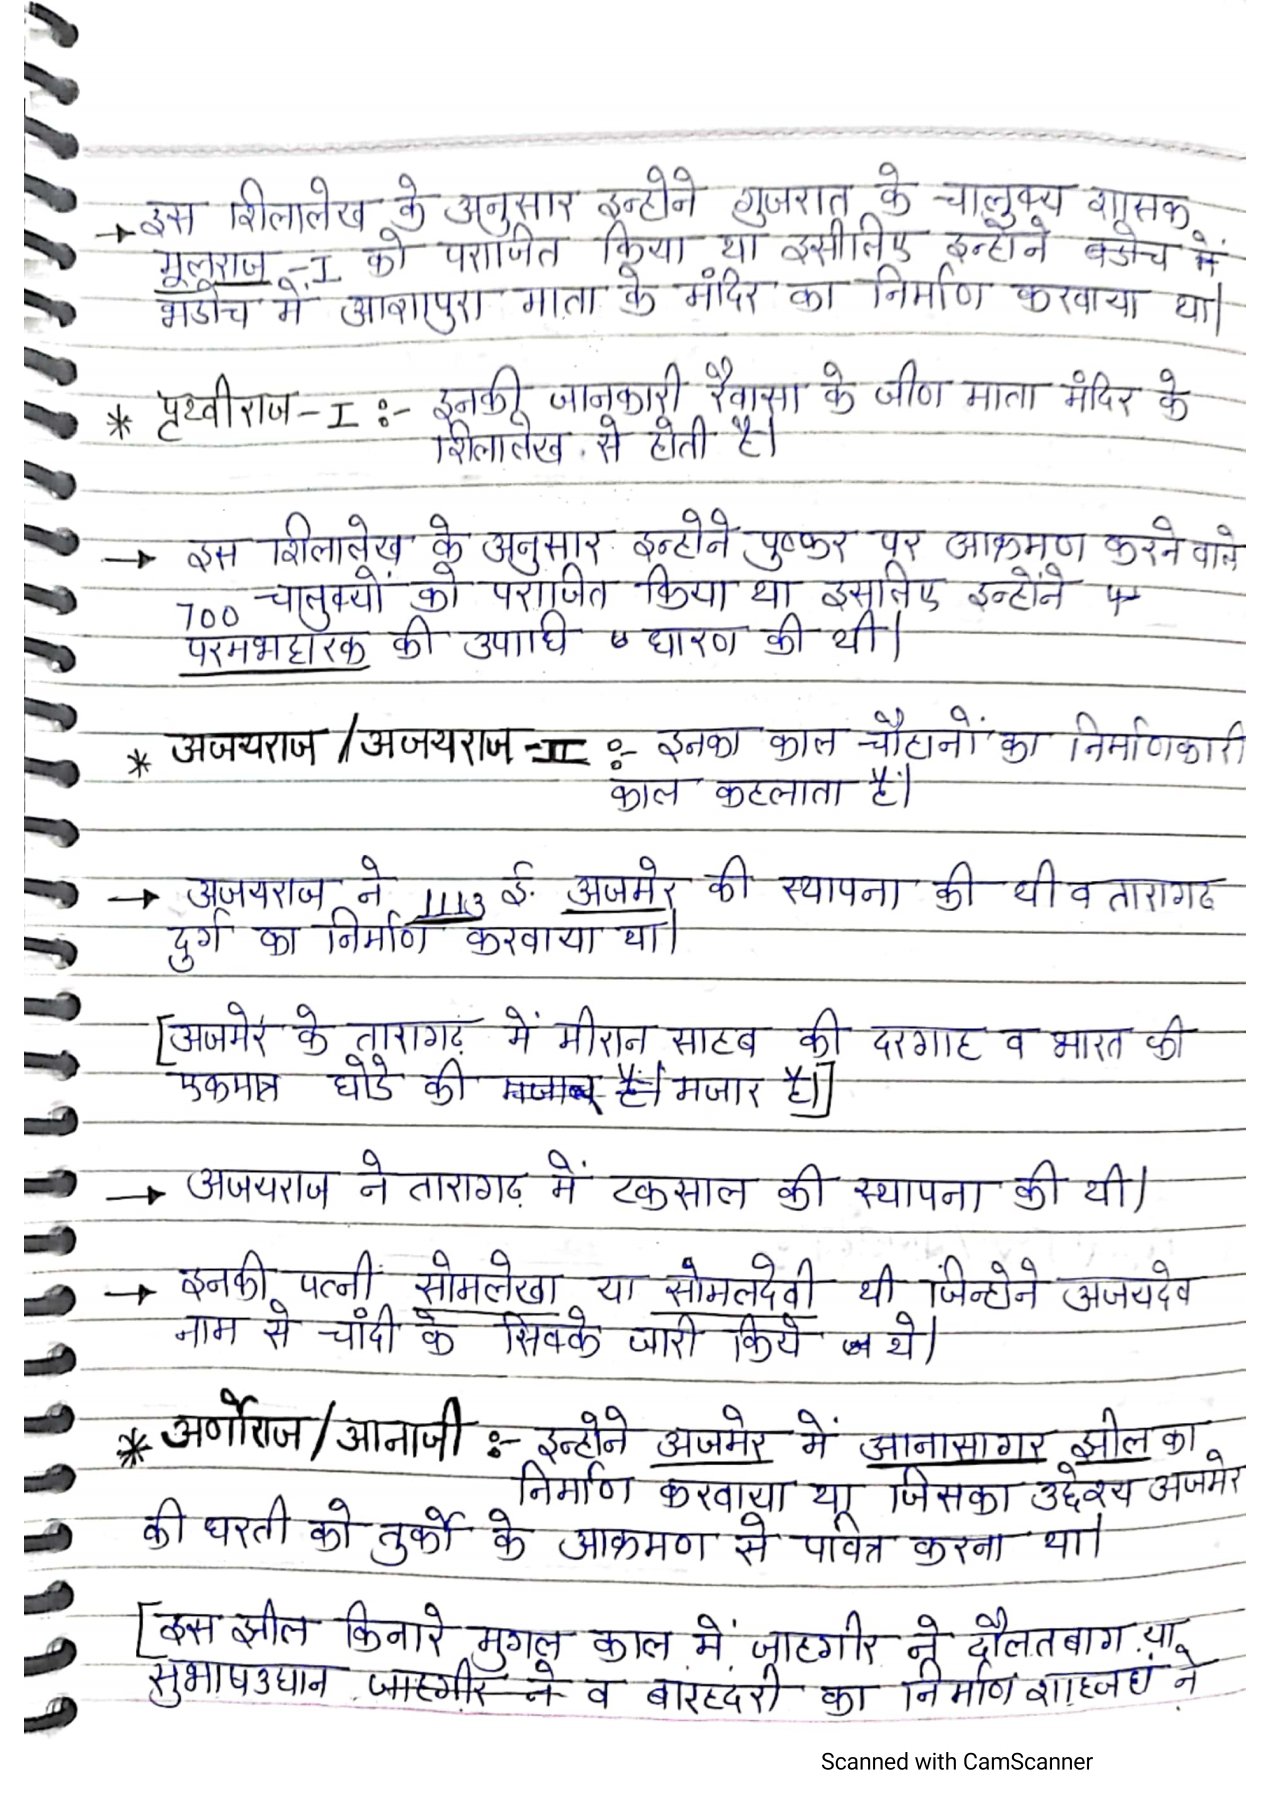 → इस शिलालेख के अनुसार इन्होने गुजरात के चालुक्य शासक
मूलराज-I को पराजित किया था इसीलिए इन्होने बडोच में
भडोच में आशापुरा माता के मंदिर का निर्माण करवाया था|
* पृथ्वीराज-I :- इनकी जानकारी रैवासा के जीण माता मंदिर के
शिलालेख से होती है|
→ इस शिलालेख के अनुसार इन्होने पुष्कर पर आक्रमण करने वाले
700 चालुक्यों को पराजित किया था इसलिए इन्होंने
परमभट्टारक की उपाधि धारण की थी|
* अजयराज/अजयराज-II :- इनका काल चौहानों का निर्माणकारी
काल कहलाता है|
→ अजयराज ने 1113 ई. अजमेर की स्थापना की थी व तारागढ
दुर्ग का निर्माण करवाया था|
[अजमेर के तारागढ़ में मीरान साहब की दरगाह व भारत की
एकमात्र घोडे की मजार है| मजार है|]
→ अजयराज ने तारागढ़ में टकसाल की स्थापना की थी|
→ इनकी पत्नी सोमलेखा या सोमलदेवी थी जिन्होने अजयदेव
नाम से चांदी के सिक्के जारी किये थे|
* अर्णोराज/आनाजी :- इन्होने अजमेर में आनासागर झील का
निर्माण करवाया था जिसका उद्देश्य अजमेर
की धरती को तुर्को के आक्रमण से पवित्र करना था|
[इस झील किनारे मुगल काल में जाहगीर ने दौलतबाग या
सुभाषउधान जाहगीर ने व बारहदरी का निर्माण शाहजहां ने
Scanned with CamScanner